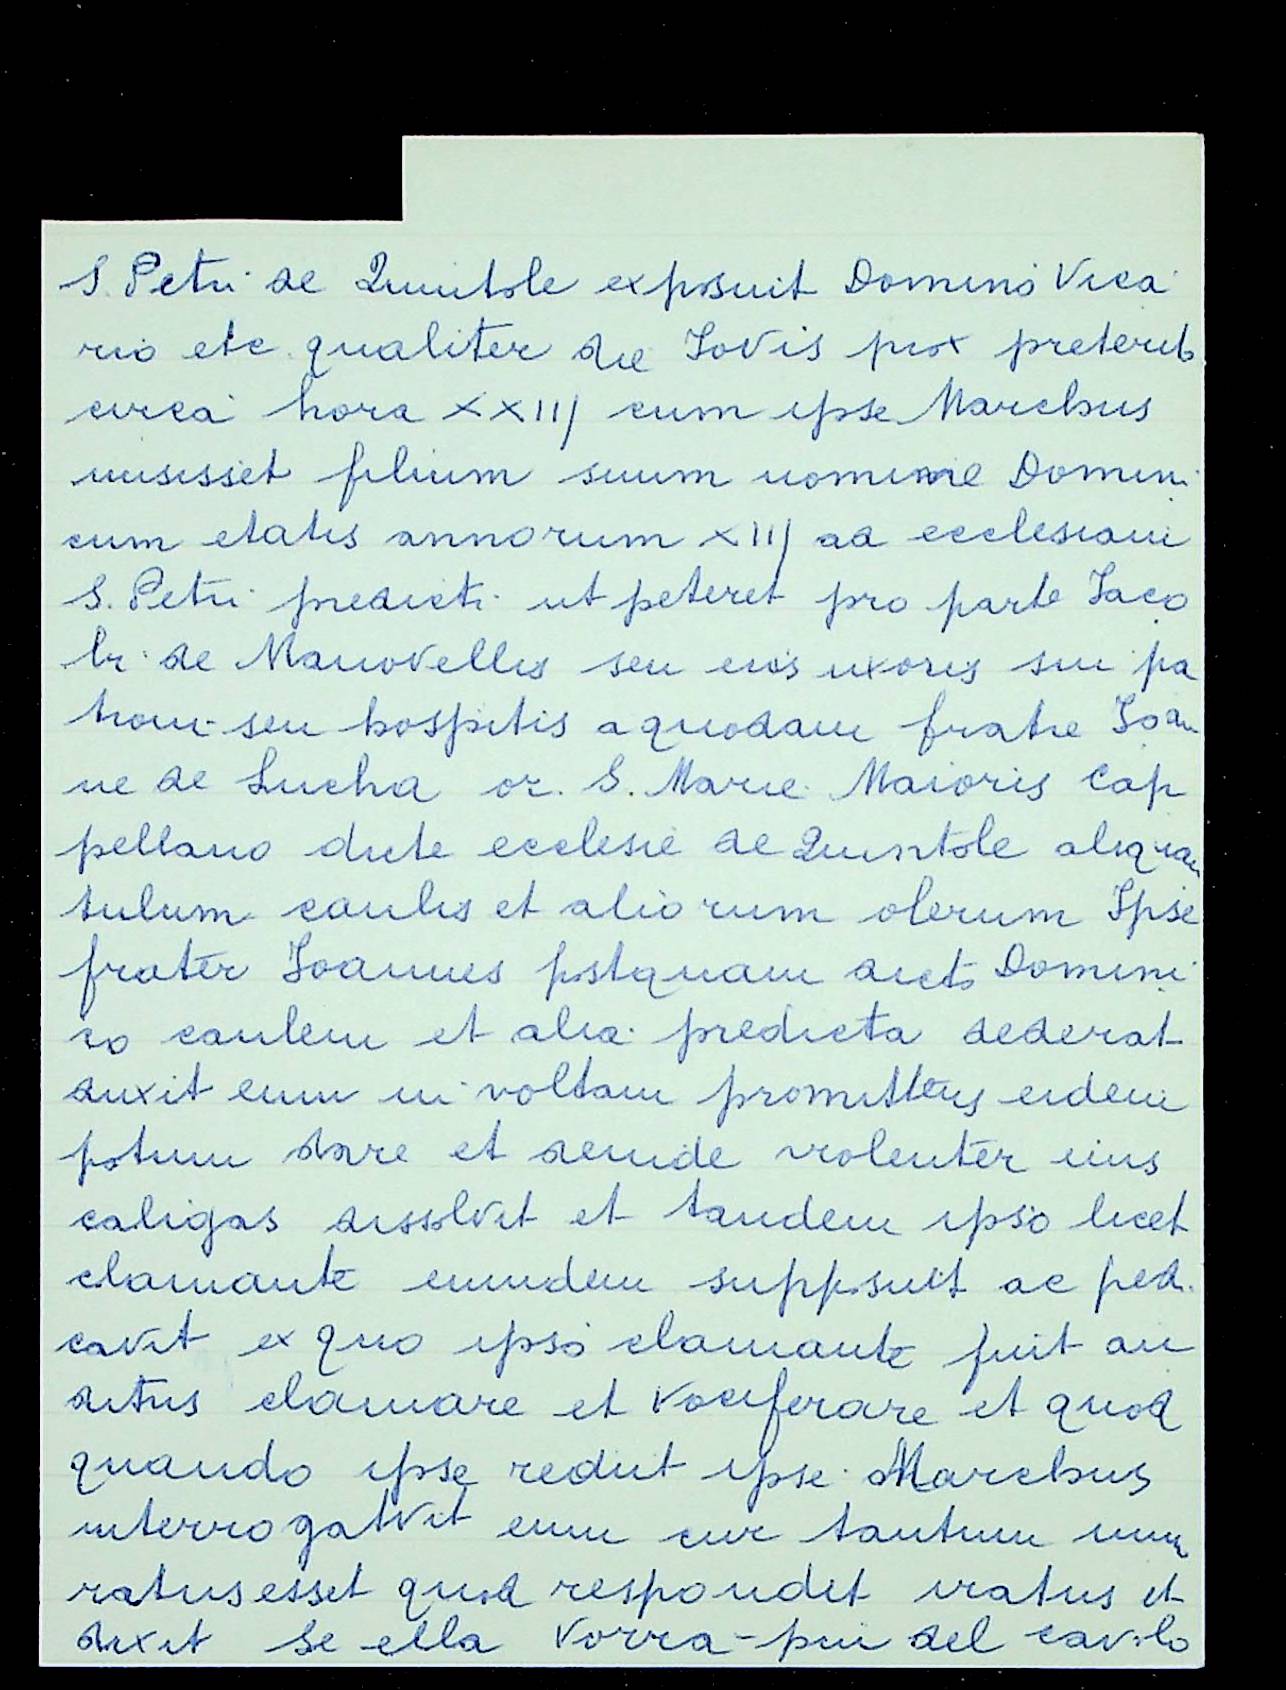 S. Petri de Quintole exposuit Domino Vica
rio etc. qualiter die Jovis prox preterito
circa hora XXIIJ cum ipse Marchus
misisset filium suum nomine Domini
cum etatis annorum XIIJ ad ecclesiam
S. Petri predicti ut peteret pro parte Jaco
bi de Manovellis seu eius uxoris sui pa
troni seu hospitis a quodam fratre Joan
ne de Lucha or. S. Marie Maioris Cap
pellano dicte ecclesie de Quintole aliquan
tulum caulis et aliorum olerum Ipse
frater Joannes postquam dicto Domini
co caulem et alia predicta dederat
duxit eum in voltam promittens eidem
potum dare et deinde violenter eius
caligas dissolvit et tandem ipso licet
clamante eumdem supposuit ac pedi
cavit ex quo ipso clamante fuit au
ditus clamare et vociferare et quod
quando ipse rediit ipse Marchus
interrogatvit eum cur tantum
ratus esset quod respondit iratus et
dixit se ella vorra-piu del cavolo